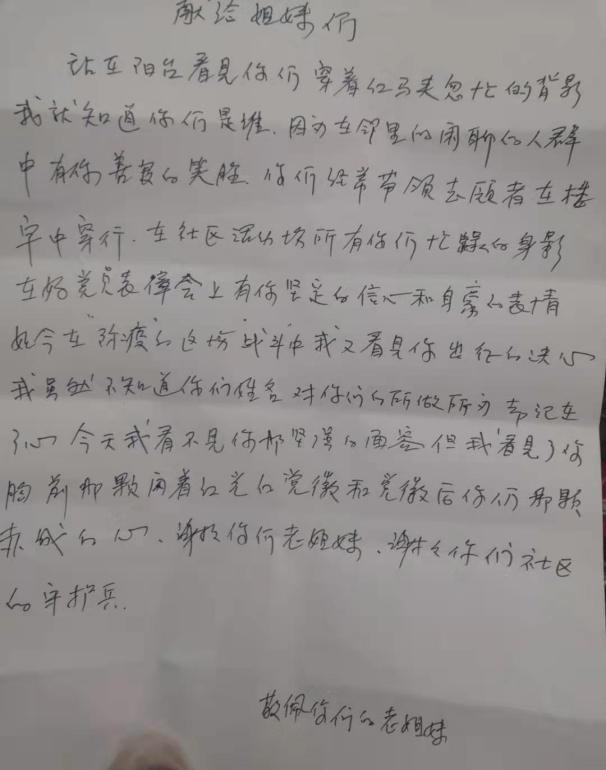 献给姐妹们
站在阳台看见你们穿着红马夹忽忙的背影
我就知道你们是谁.因为在邻里的闲聊的人群
中有你善良的笑脸.你们经常带领志愿者在楼
宇中穿行.在社区活动场所有你们忙碌的身影
在好党员表彰会上有你坚定的信心和自豪的表情
如今在"除疫"的这场战斗中我又看见你出征的决心
我虽然不知道你们姓名对你们的所做所为却记在
了心 今天我看不见你那坚强的面容但我看见了你
胸前那颗闪着红光的党徽和党徽后你们那颗
赤诚的心、谢谢你们老姐妹、谢谢你们社区
的守护兵.
敬佩你们的老姐妹